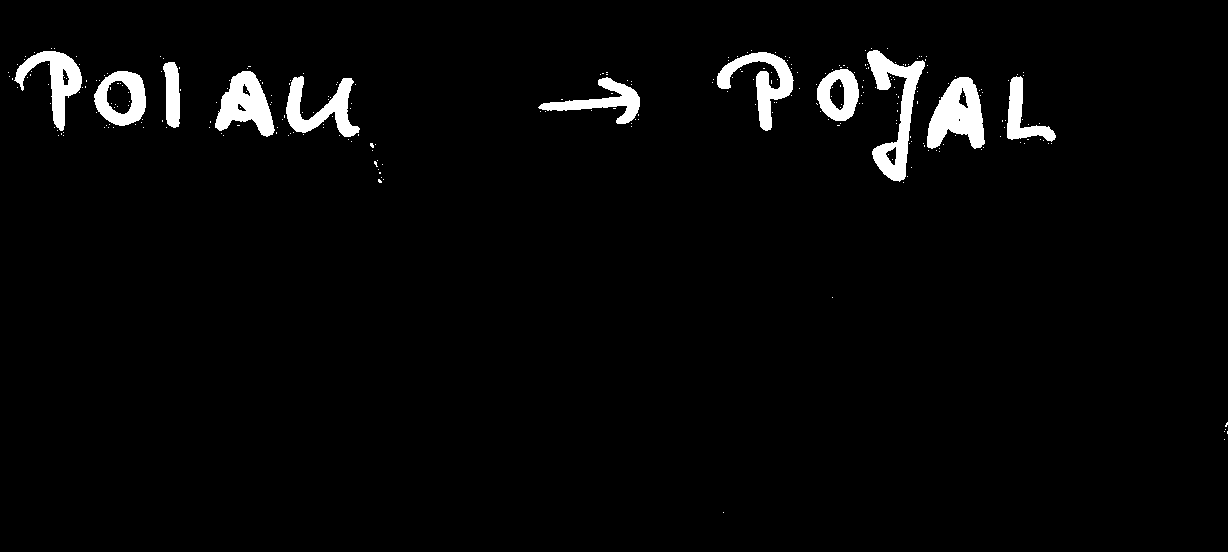 POIAU → POYAL